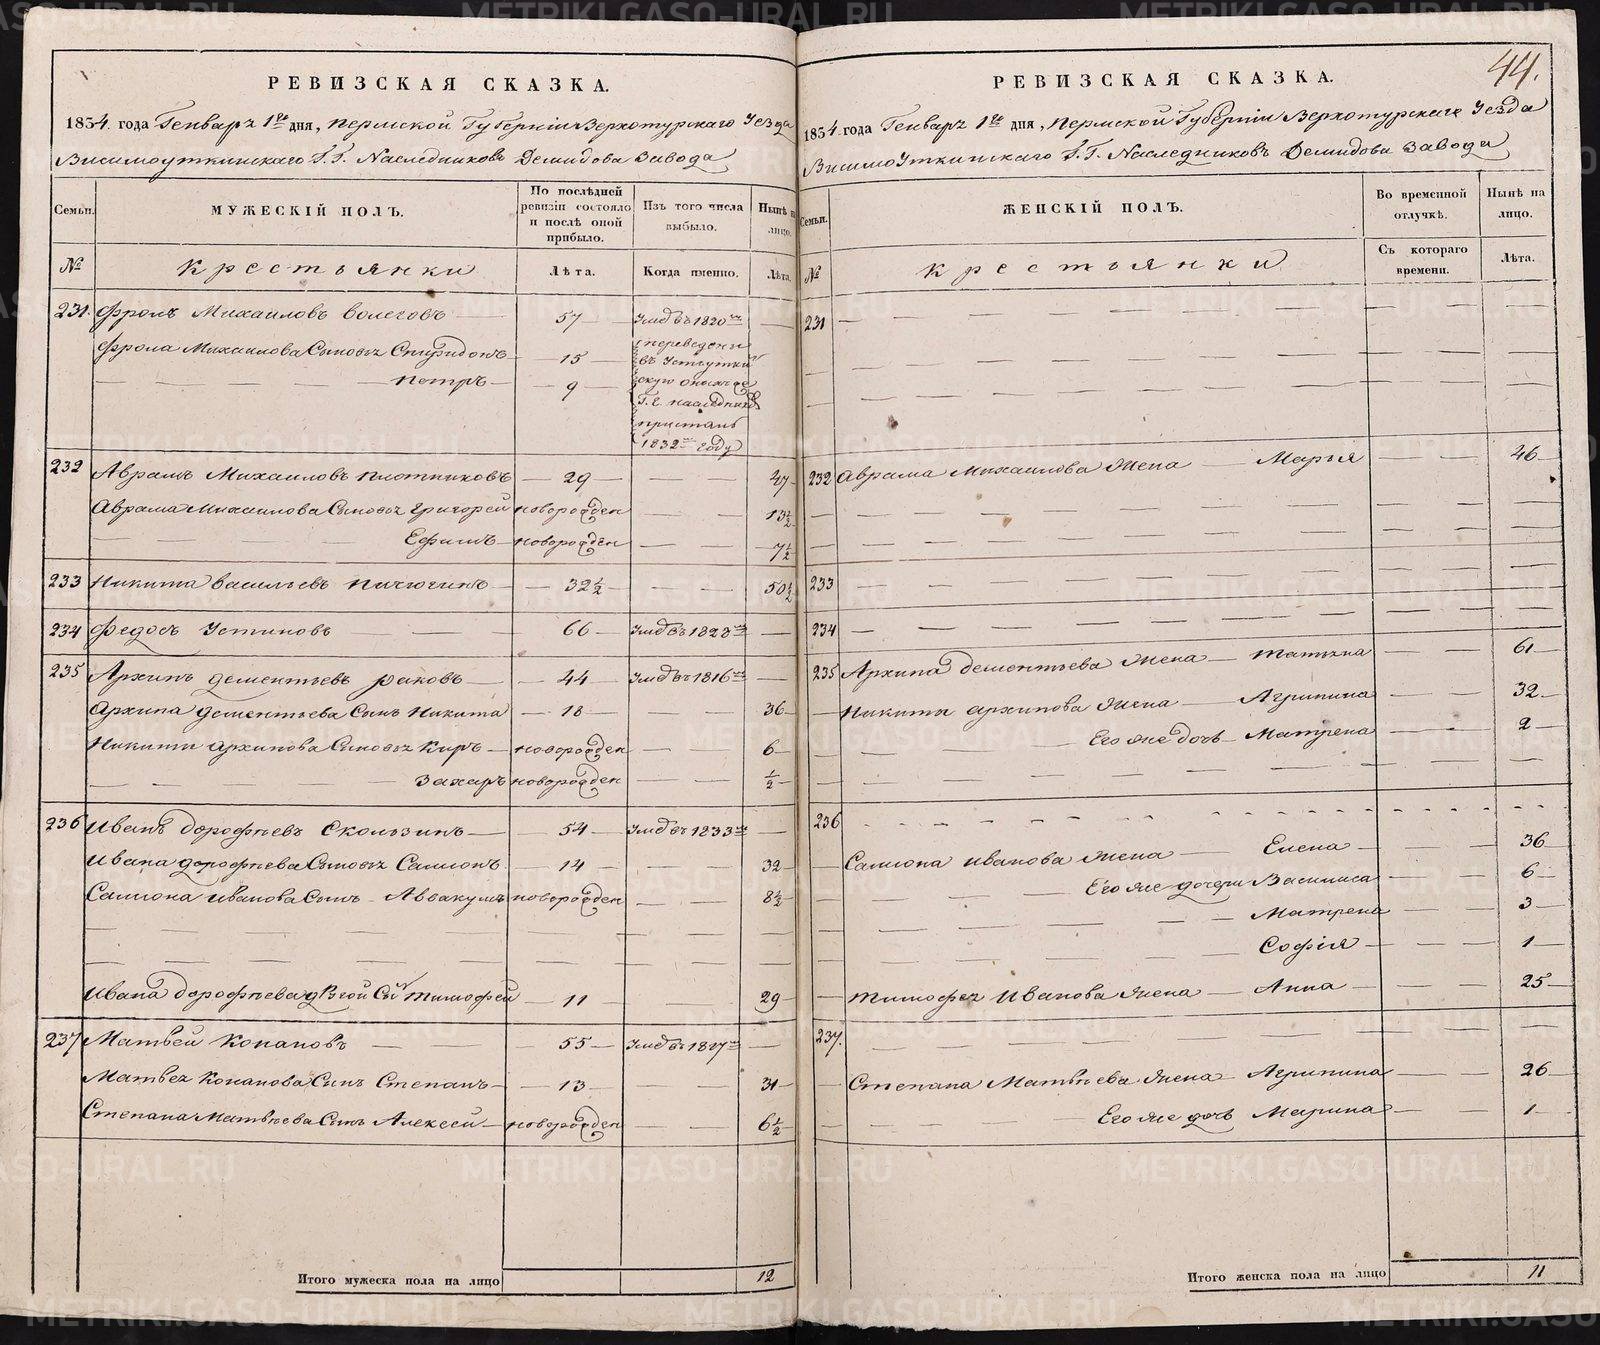 44.
РЕВИЗСКАЯ СКАЗКА.
1834. года Генваря 1го дня, Пермской Губернiи Верхотурскаго Уезда
Висимоуткинскаго Г.Г. Наследниковъ Демидова Завода
Семьи.
МУЖЕСКIЙ ПОЛЪ.
По послѣдней ревизiи состояло и послѣ оной прибыло.
Изъ того числа выбыло.
Нынѣ на лицо.
№
Крестьянки
Лѣта.
Когда именно.
Лѣта.
231. Фролъ Михаиловъ Волеговъ 57 Умъ въ 1820мъ
Фрола Михаилова Сыновья Спиридонъ 15 переведены
Петръ 9 въ Усть уткин
скую оныхъ же
Г.г. наследников
пристань
1832мъ году
232 Аврамъ Михаиловъ Плотниковъ 29 47
Аврама Михаилова Сыновья Григорей новорожден 13½
Ефимъ новорожден 7½
233 Никита Васильевъ Пичюгинъ 32½ 50½
234 Федосъ Устиновъ 66 Умъ въ 1823мъ
235 Архипъ Дементьевъ Раковъ 44 Умъ въ 1816мъ
Архипа Дементьева Сынъ Никита 18 36
Никиты Архипова Сыновья Киръ новорожден 6
Захаръ новорожден ½
236 Иванъ Дорофѣевъ Скользинъ 54 Умъ въ 1833мъ
Ивана Дорофѣева Сыновья Самсонъ 14 32
Самсона Иванова Сынъ Аввакумъ новорожден 8½
Ивана Дорофѣева другой Сын Тимофей 11 29
237 Матвей Конановъ 55 Умъ въ 1827мъ
Матвея Конанова Сынъ Степанъ 13 31
Степана Матвѣева Сынъ Алексей новорожден 6½
Итого мужеска пола на лицо 12
РЕВИЗСКАЯ СКАЗКА.
1834. года Генваря 1го дня, Пермской Губернiи Верхотурскаго Уезда
Висимоуткинскаго Г.Г. Наследниковъ Демидова Завода
Семьи.
ЖЕНСКIЙ ПОЛЪ.
Во временной отлучкѣ.
Нынѣ на лицо.
№
Крестьянки
Съ котораго времени.
Лѣта.
231
232 Аврама Михаилова Жена Марья 46
233
234
235 Архипа Дементьева Жена Татьяна 61
Никиты Архипова Жена Агрипина 32
Его же дочь Матрена 2
236
Самсона Иванова Жена Елена 36
Его же дочери Василиса 6
Матрена 3
Софiя 1
Тимофея Иванова Жена Анна 25
237.
Степана Матвѣева Жена Агрипина 26
Его же дочь Марина 1
Итого женска пола на лицо 11
METRIKI.GASO-URAL.RU